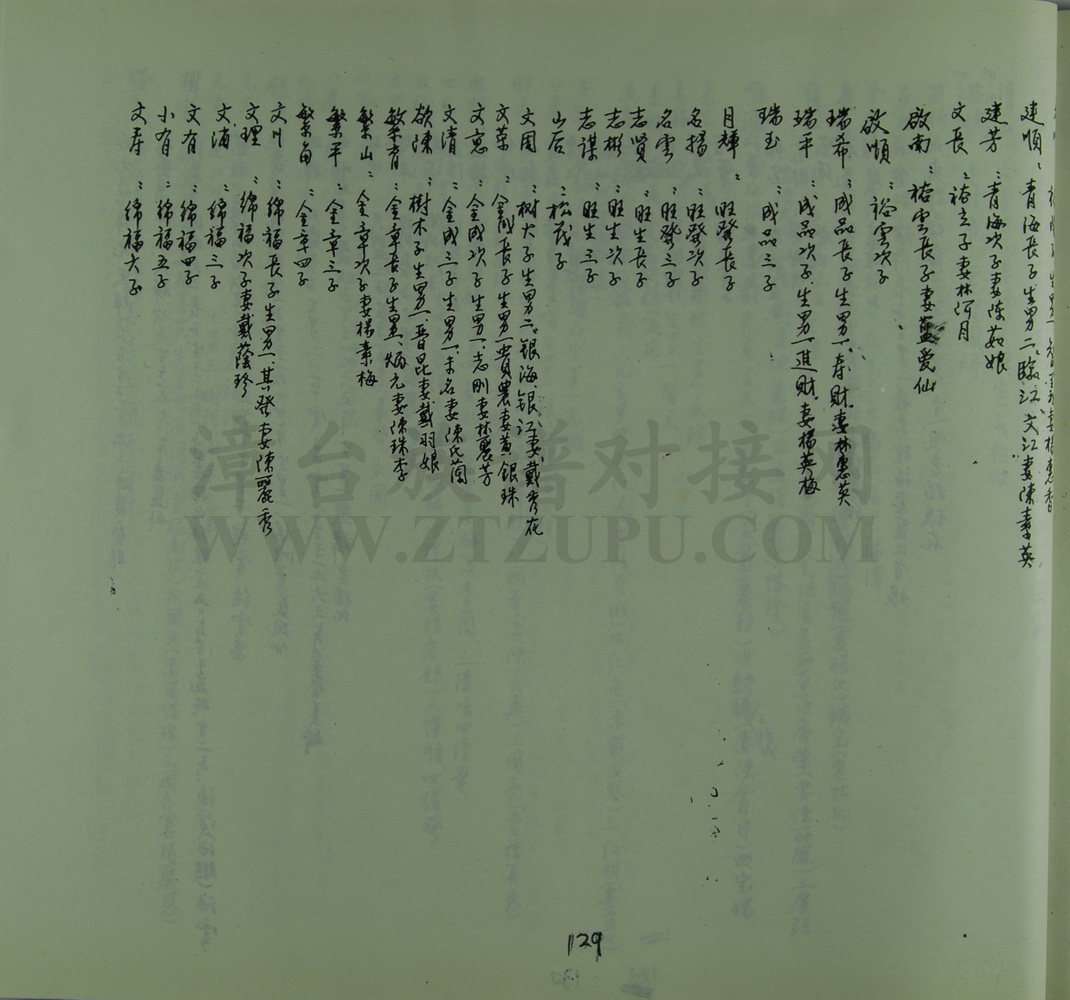 建順：青海長子生男二、臨江、文江妻陳素英
建芳：青海次子妻陈茹娘
文長：裕立子妻林阿月
啟南：裕雲長子妻藍愛仙
啟順：裕雲次子
瑞希：成品長子生男一、春財妻林惠英
瑞平：成品次子生男一、進財妻楊英梅
瑞玉：成品三子
月輝：旺發長子
名揚：旺發次子
名雲：旺發三子
志賢：旺生長子
志彬：旺生次子
志謀：旺生三子
山后：松茂子
文周：树大子生男二、银海、银江妻戴秀花
文章：金成長子生男一、農妻黃银珠
文惠：金成次子生男一、志刚妻林麗芳
文清：金成三子生男一、未名妻陳氏蘭
啟陳：樹木子生男一、晋昆妻戴羽娘
繁青：金章長子生男一、炳元妻陳珠李
繁山：金章次子妻楊素梅
繁平：金章三子
繁甸：金章四子
文川：綿福長子生男一、其發妻陳麗秀
文理：綿福次子妻戴蔭珍
文浦：綿福三子
文有：綿福四子
小有：綿福五子
文寿：綿福六子
129
漳台族谱对接网
WWW.ZTZUPU.COM